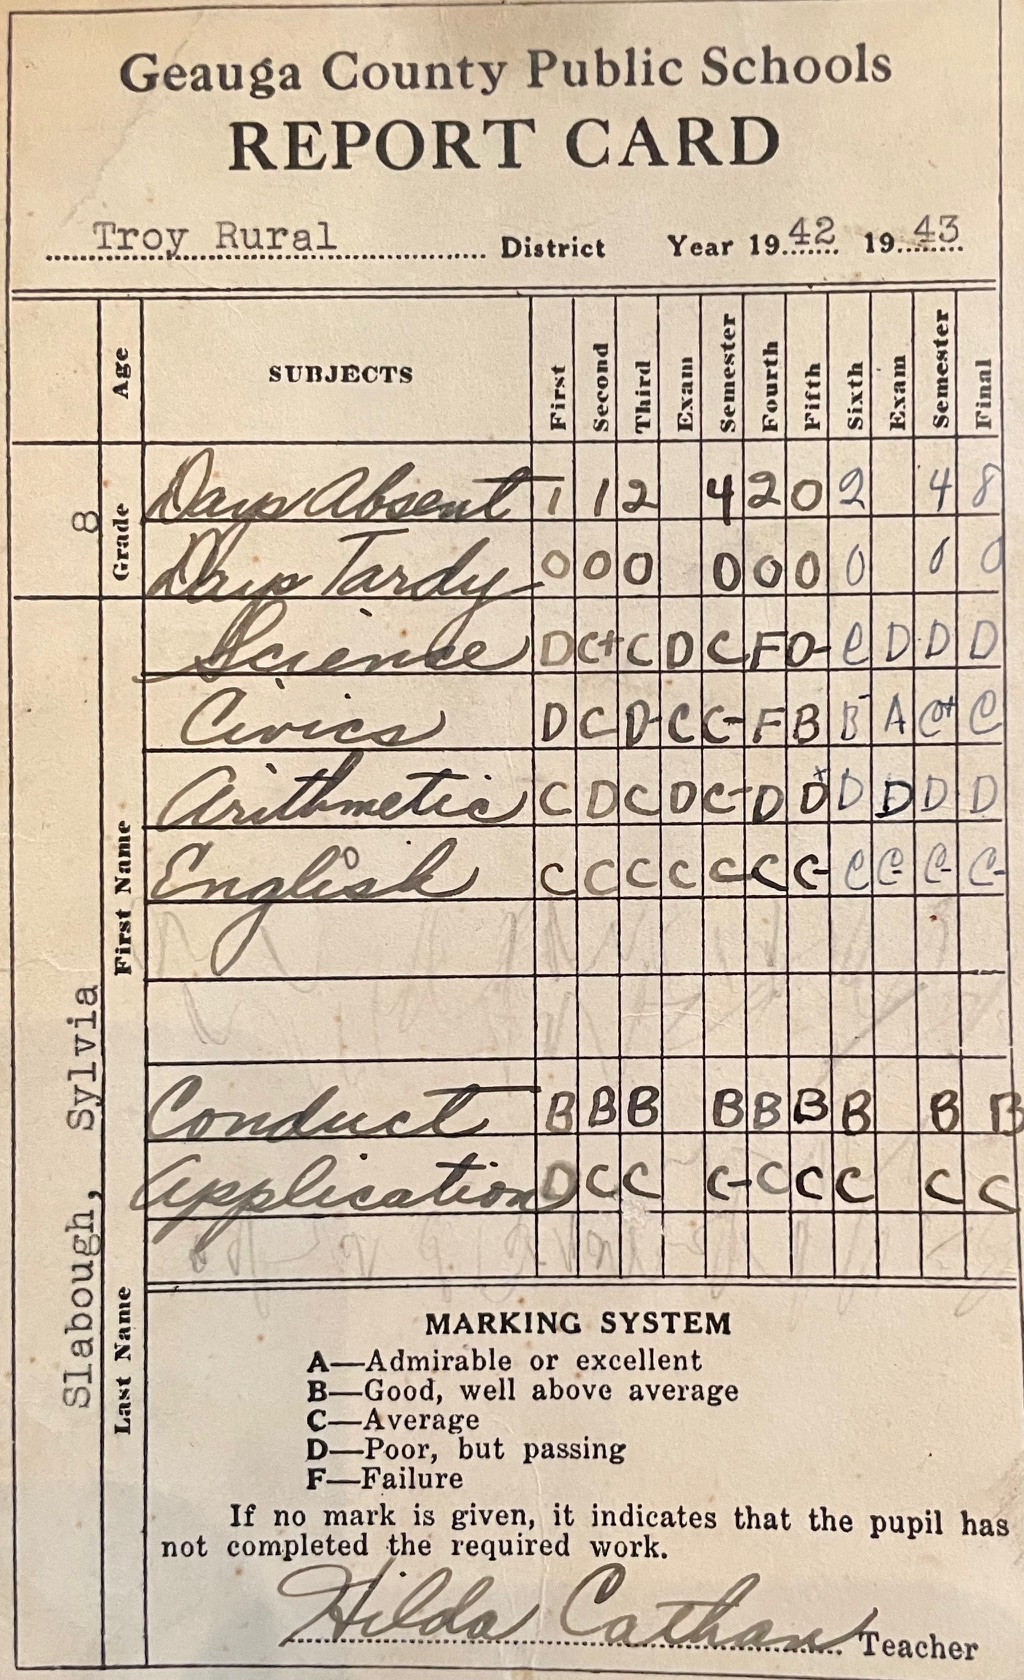 Geauga County Public Schools
REPORT CARD
Troy Rural District Year 1942 1943
Age SUBJECTS First Second Third Exam Semester Fourth Fifth Sixth Exam Semester Final
8 Grade
Days Absent 1 1 2 4 2 0 2 4 8
Days Tardy 0 0 0 0 0 0 0 0 0
Science D C+ C D C F D- C D D D
Civics D C D- C C- F B B- A C+ C
Arithmetic C D C D C- D D+ D D D D
English C C C C C C C- C C- C- C-
Conduct B B B B B B B B B
Application D C C C- C C C C C
Slabough, Sylvia
Last Name First Name
MARKING SYSTEM
A—Admirable or excellent
B—Good, well above average
C—Average
D—Poor, but passing
F—Failure
If no mark is given, it indicates that the pupil has
not completed the required work.
Hilda Cathan Teacher